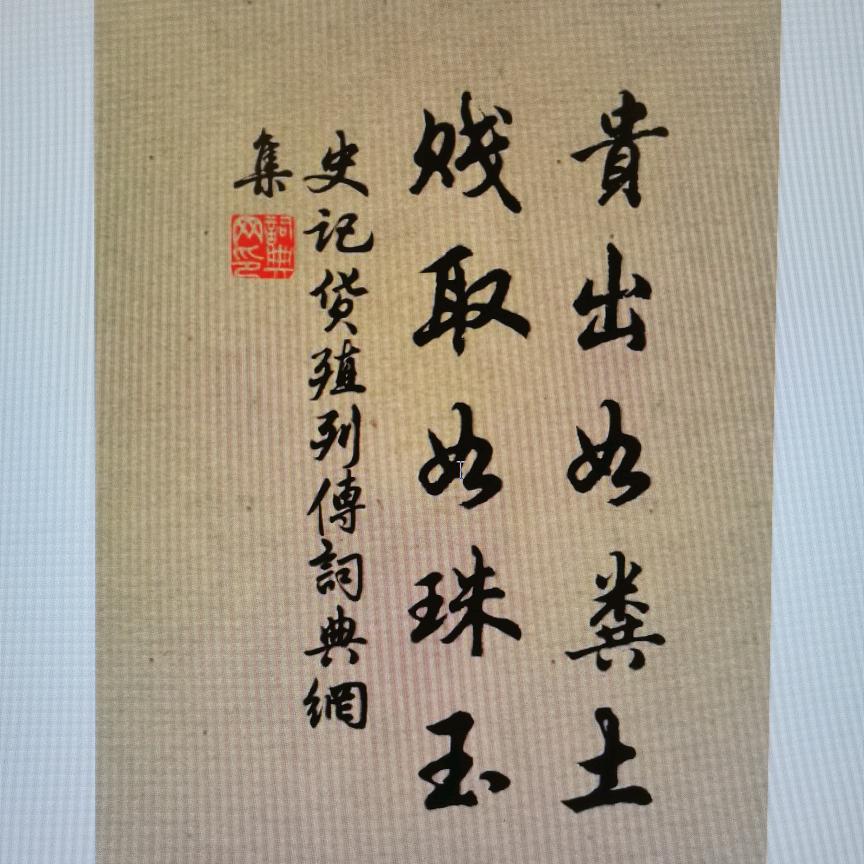 貴出如糞土
賤取如珠玉
史記貨殖列傳詞典網
集
詞典
网印